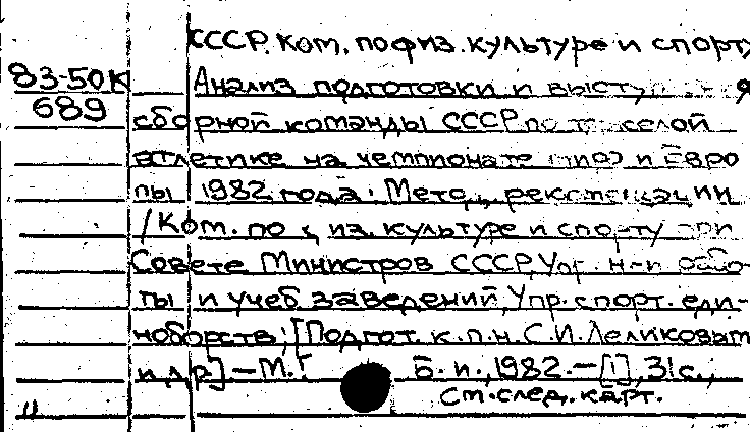 СССР. Ком. по физ. культуре и спорту
83-50К Анализ подготовки и
689 сборной команды СССР по тяжелой
атлетике на чемпионате мира и Евро
пы 1982 года: Метод. рекомендации
/Ком. по физ. культуре и спорту при
Совете Министров СССР, Упр. н-и рабо-
ты и учеб заведений, Упр. спорт. еди-
ноборств; [Подгот. к.п.н. С.И. Леликовым
и др.] – М.: Б. и., 1982. – [1], 31 с.,
См. след. карт.
"